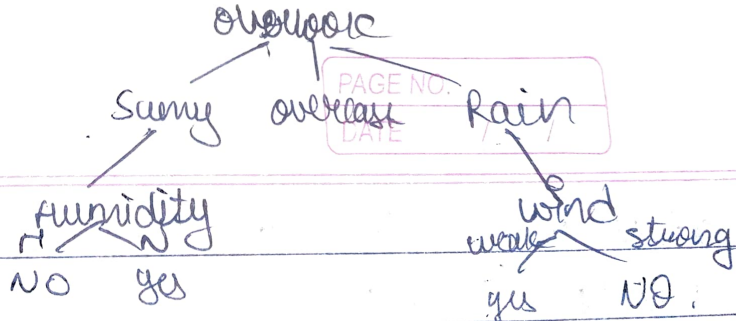 overlook
PAGE NO.
Sunny overcast Rain
DATE / /
Humidity wind
H N weak strong
NO yes yes NO.